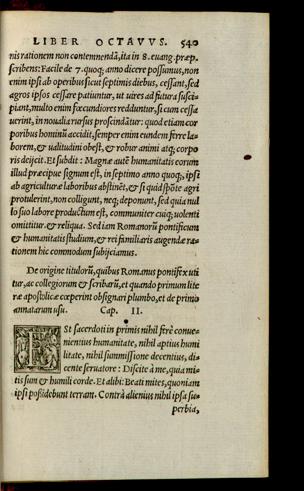 LIBER OCTAVVS. 540
nis rationem non contemnendā, ita in 8. euang. præp.
scribens: Facile de 7. quoq; anno dicere possumus, non
enim ipsi ab operibus sicut septimis diebus, cessant, sed
agros ipsos cessare patiuntur, ut uires ad futura susci-
piant, multo enim fœcundiores redduntur, si cum cessa
uerint, in noualia rursus proscindātur: quod etiam cor
poribus hominū accidit, semper enim eundem ferre la-
borem, & ualitudini obest, & robur animi atq; corpo
ris deijcit. Et subdit: Magnæ autē humanitatis eorum
illud præcipue signum est, in septimo anno quoq;, ipsi
ab agriculturæ laboribus abstinēt, & si quid spōte agri
protulerint, non colligunt, neq; deponunt, sed quia nul
lo suo labore productum est, communiter cuiq; uolenti
omittitur. & reliqua. Sed iam Romanorū pontificum
& humanitatis studium, & rei familiaris augendæ ra-
tionem hic commodum subijciamus.
De origine titulorū, quibus Romanus pontifex uti
tur, ac collegiorum & scribarū, et quando primum lite
ræ apostolicæ cœperint obsignari plumbo, et de primo
annatarum usu. Cap. II.
ESt sacerdoti in primis nihil ferè conue-
nientius humanitate, nihil aptius humi
litate, nihil summissione decentius, di-
cente seruatore: Discite à me, quia mi-
tis sum & humili corde. Et alibi: Beati mites, quoniam
ipsi possidebunt terram. Contrà alienius nihil ipsa su-
perbia,